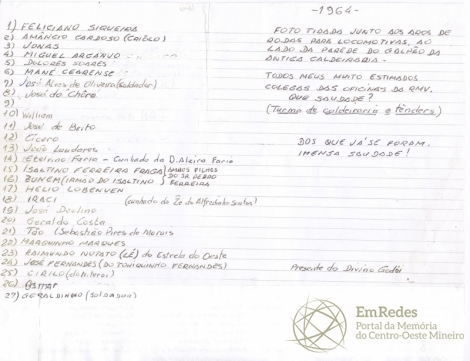 1) FELICIANO SIQUEIRA
2) AMÂNCIO CARDOSO (CRIOLO)
3) JONAS
4) MIGUEL ARCANJO
5) DOLORES SOARES
6) MANÉ CEARENSE
7) José Alves de Oliveira (Soldador)
8) José do Chéro
9)
10) William
11) José de Brito
12) Cícero
13) João Lourdores
14) Etelvino Faria - Cunhado da D. Alzira Faria
15) ISALTINO FERREIRA FRAGA } AMBOS FILHOS
16) ZUHEM (IRMÃO DO ISALTINO) } DO SR. PEDRO FERREIRA
17) HELIO LOBENVEN
18) IRACI (cunhado de Zé do Alfredinho Santos)
19) José Deolino
20) Geraldo Costa
21) Tão (Sebastião Pires de Morais
22) MARQUINHO MARQUES
23) RAIMUNDO NONATO (ZÉ) do Estrela do Oeste
24) JOSÉ FERNANDES (DO TONIQUINHO FERNANDES)
25) CIRILO
26) OSMAR
27) GERALDINHO (SOLDADOR)
-1964-
FOTO TIRADA JUNTO AOS AROS DE
RODAS PARA LOCOMOTIVAS, AO
LADO DA PAREDE DO GALPÃO DA
ANTIGA CALDEIRARIA -
TODOS MEUS MUITO ESTIMADOS
COLEGAS DAS OFICINAS DA RMV.
QUE SAUDADE?
(Turma de caldeiraria e tênders)
DOS QUE JÁ SE FORAM,
IMENSA SAUDADE!
Presente do Divino
EmRedes
Portal da Memória
do Centro-Oeste Mineiro